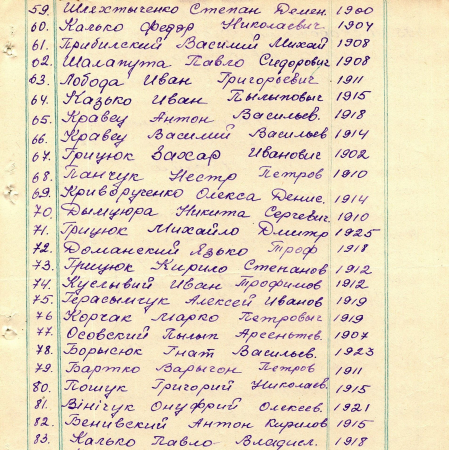 59. Шлехтыченко Степан Демен. 1900
60. Калько Федор Николаевич. 1904
61. Прибилский Василий Михай 1908
62. Шалапута Павло Сидорович 1908
63. Лобода Иван Григорьевич 1911
64. Казько Иван Пылыповыч 1915
65. Кравец Антон Васильев. 1918
66. Кравец Василий Васильев 1914
67. Грицюк Захар Иванович 1902
68. Панчук Нестр Петров 1910
69. Криворученко Олекса Денис. 1914
70. Дымцюра Никита Сергевич. 1910
71. Грицюк Михайло Дмитр 1925
72. Доманский Язько Троф 1918
73. Грицюк Кирило Степанов 1912
74. Иван Трофимов 1912
75. Герасымчук Алексей Иванов 1919
76 Корчак Марко Петровыч 1919
77. Осовский Пылып Арсеньтев. 1907
78. Борысюк Гнат Васильев. 1923
79. Бартко Варыгон Петров 1911
80. Пошук Григорий Николаев. 1915
81. Вінічук Онуфрий Олексев. 1921
82. Бенивский Антон Кирилов 1915
83. Калько Павло Владисл. 1918